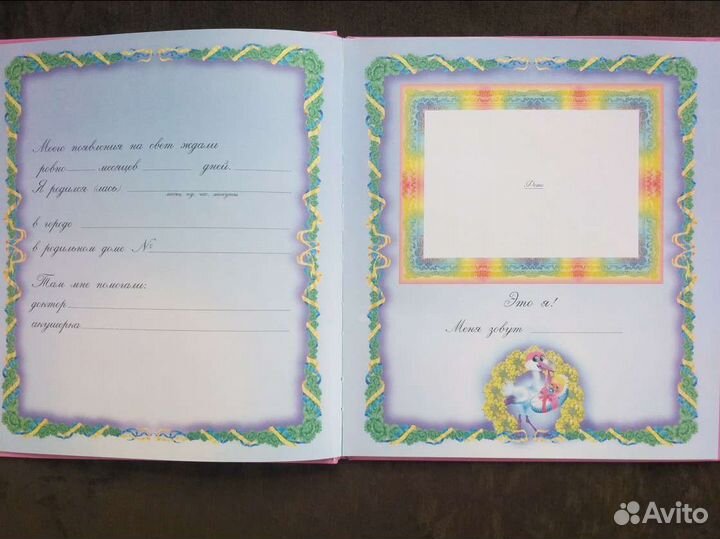 Моего появления на свет ждали
ровно месяцев дней.
Я родился (лась)
месяц, год, час, минуты
в городе
в родильном доме №
Там мне помогали:
доктор
акушерка
Фото
Это я!
Меня зовут
Avito